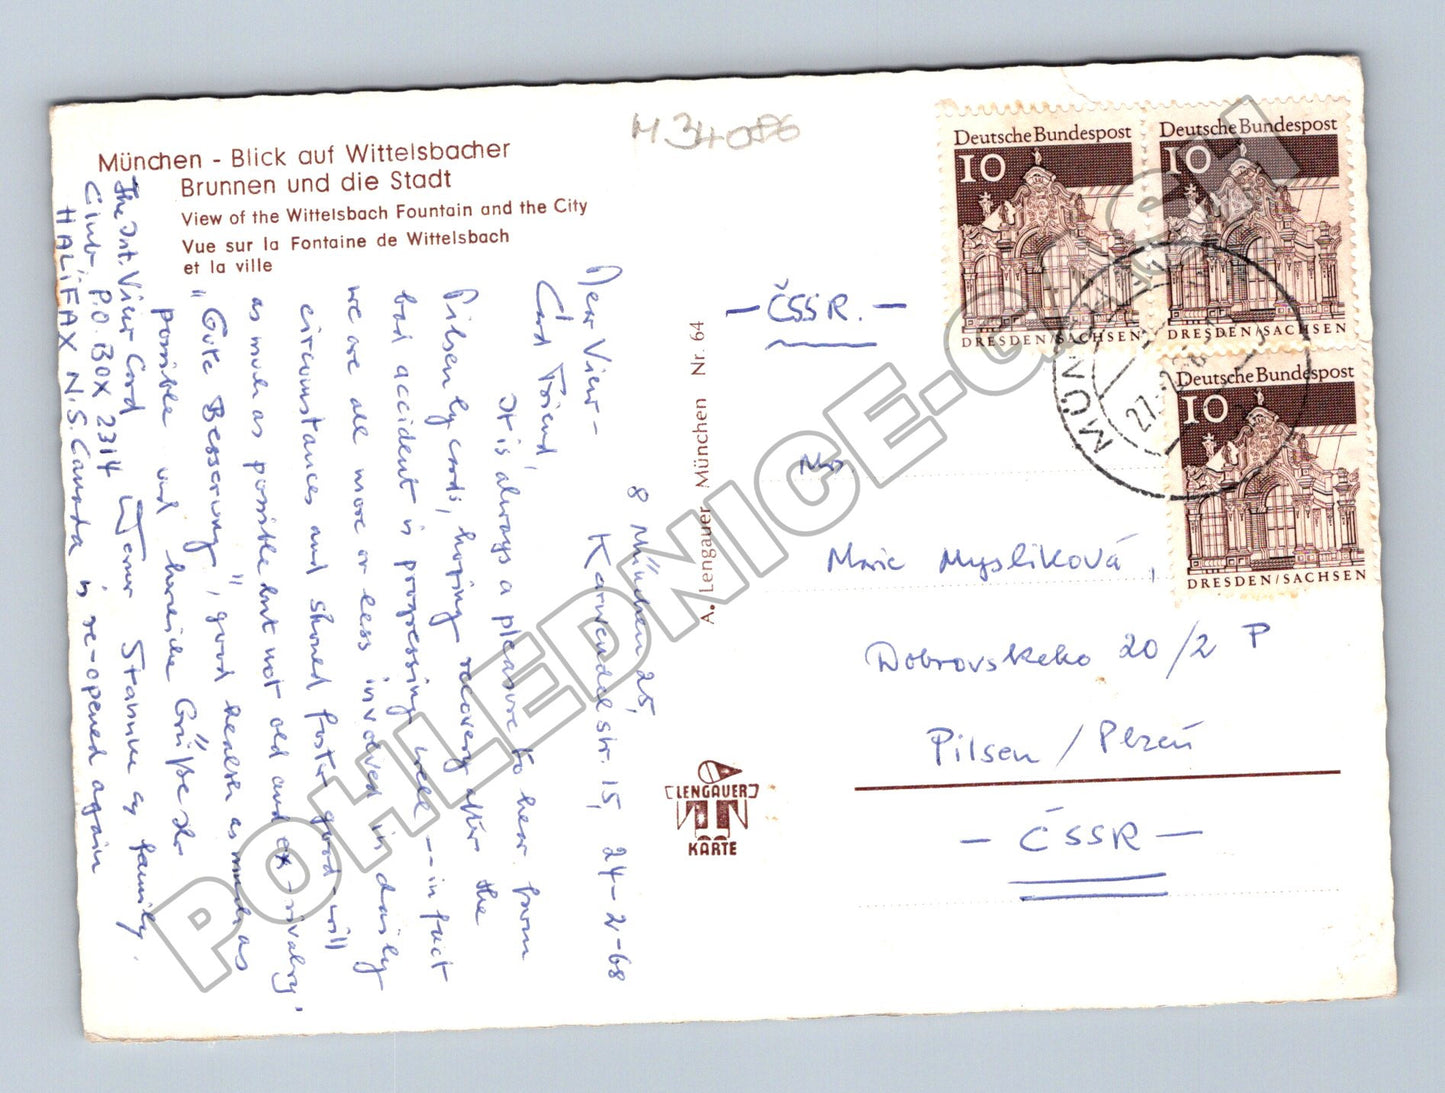 München - Blick auf Wittelsbacher
Brunnen und die Stadt
View of the Wittelsbach Fountain and the City
Vue sur la Fontaine de Wittelsbach
et la ville
M 34086
Deutsche Bundespost
10
DRESDEN/SACHSEN
Deutsche Bundespost
10
DRESDEN/SACHSEN
Deutsche Bundespost
10
DRESDEN/SACHSEN
MÜNCHEN
27.-2.68
- ČSSR. -
Marie Mysliková,
Dobrovskeho 20/2 P
Pilsen / Plzeň
- ČSSR -
A. Lengauer München Nr. 64
LENGAUER
KARTE
8 München 25,
Karwendelstr. 15, 24-2-68
Dear View-
Card Friend,
It is always a pleasure to hear from
Pilsen by cards, hoping recovery after the
bad accident is progressing well -- in fact
we are all more or less involved in daily
circumstances and should foster good-will
as much as possible but not old and ex-rivalry.
"Gute Besserung", good health as much as
possible and herzliche Grüße
Werner Stamm & family.
The Int. View Card
Club, P.O. BOX 2314
HALIFAX N.S. Canada is re-opened again
POHLEDNICE-CZECH